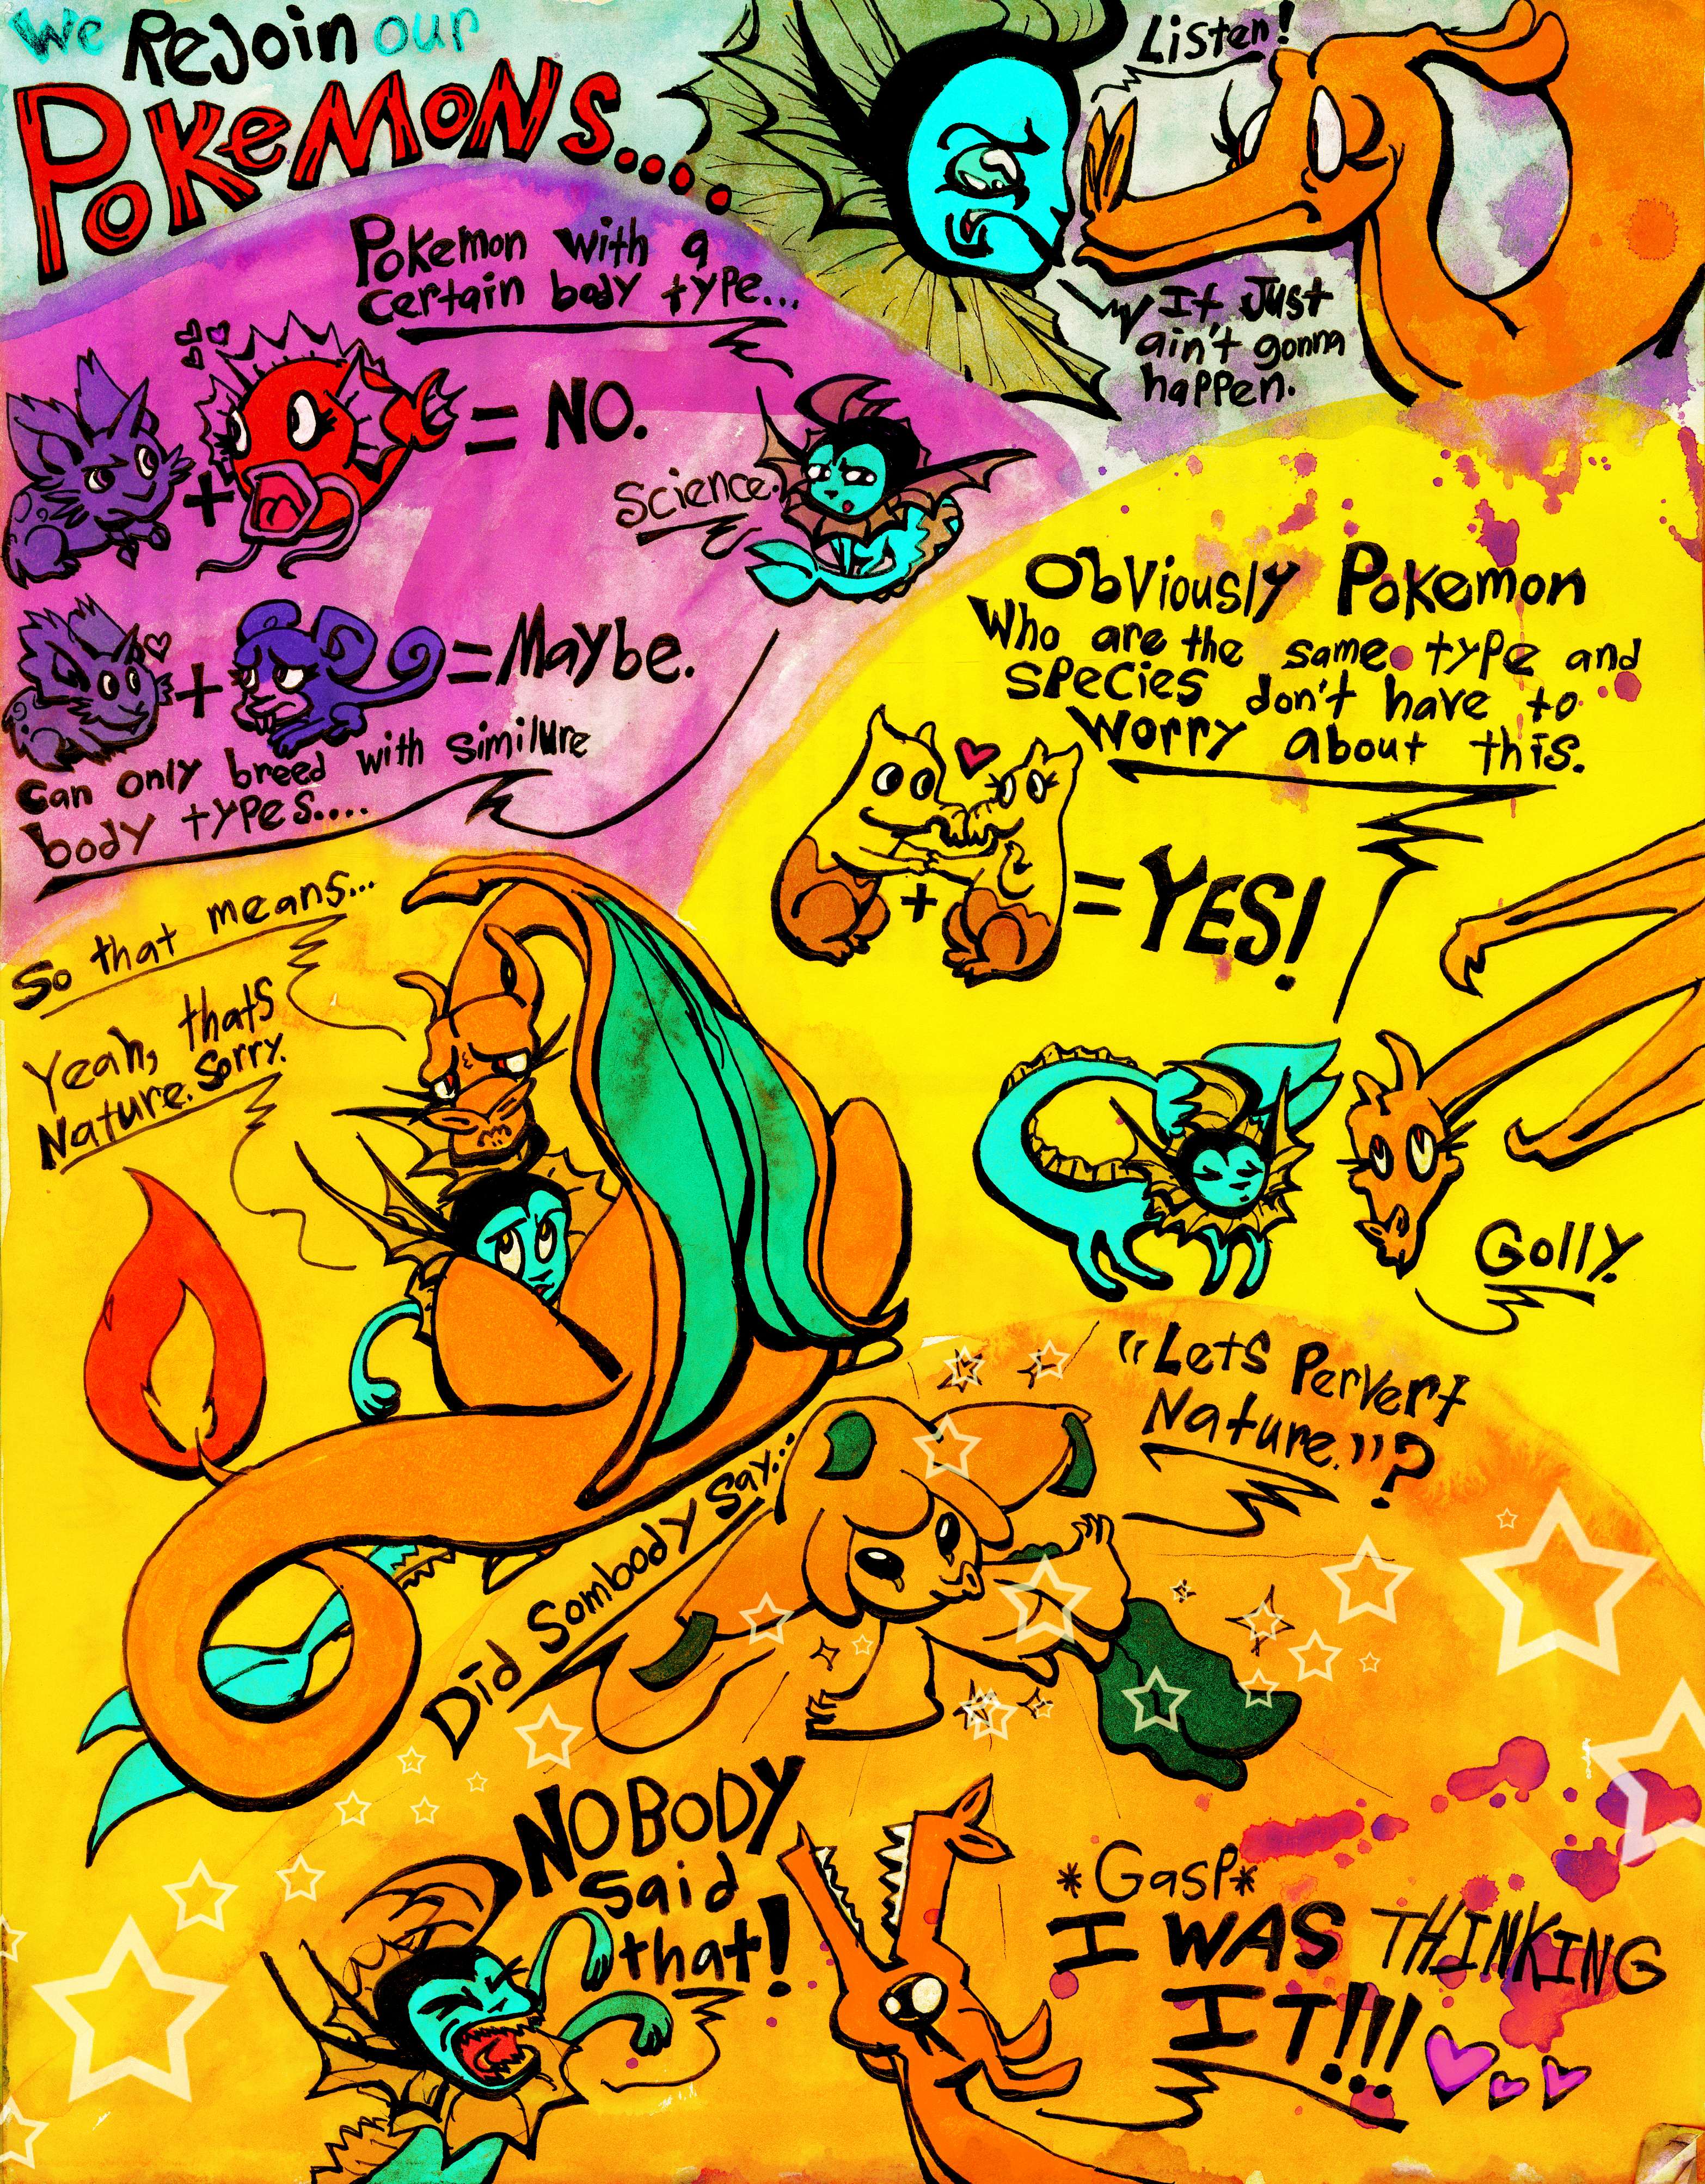 We Rejoin our
POKeMONS....
Listen!
It Just
ain't gonna
happen.
Pokemon with a
certain body type...
+ = NO.
Science.
+ = Maybe.
Can only breed with similure
body types....
Obviously Pokemon
Who are the same type and
species don't have to
worry about this.
+ = YES!
So that means...
Yeah, thats
Nature. Sorry.
Golly.
Did Sombody Say...
"Lets Pervert
Nature."?
NOBODY
said
that!
*Gasp*
I WAS THINKING
IT!!!